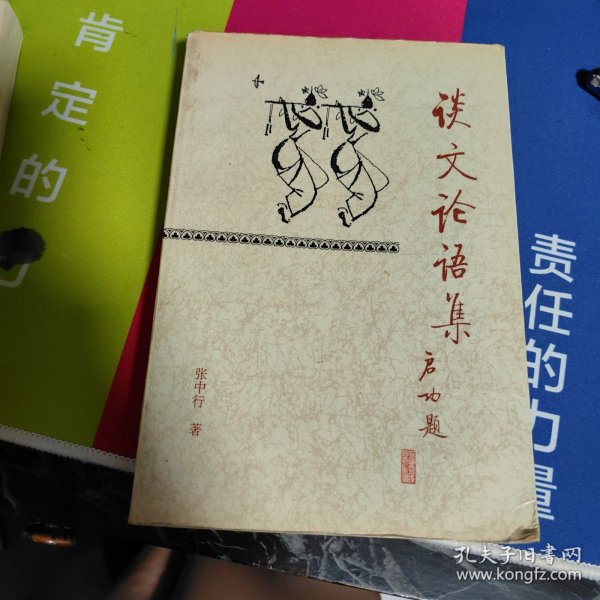 肯定的
谈文论语集
启功题
张中行 著
责任的力量
孔夫子旧书网
www.kongfz.com